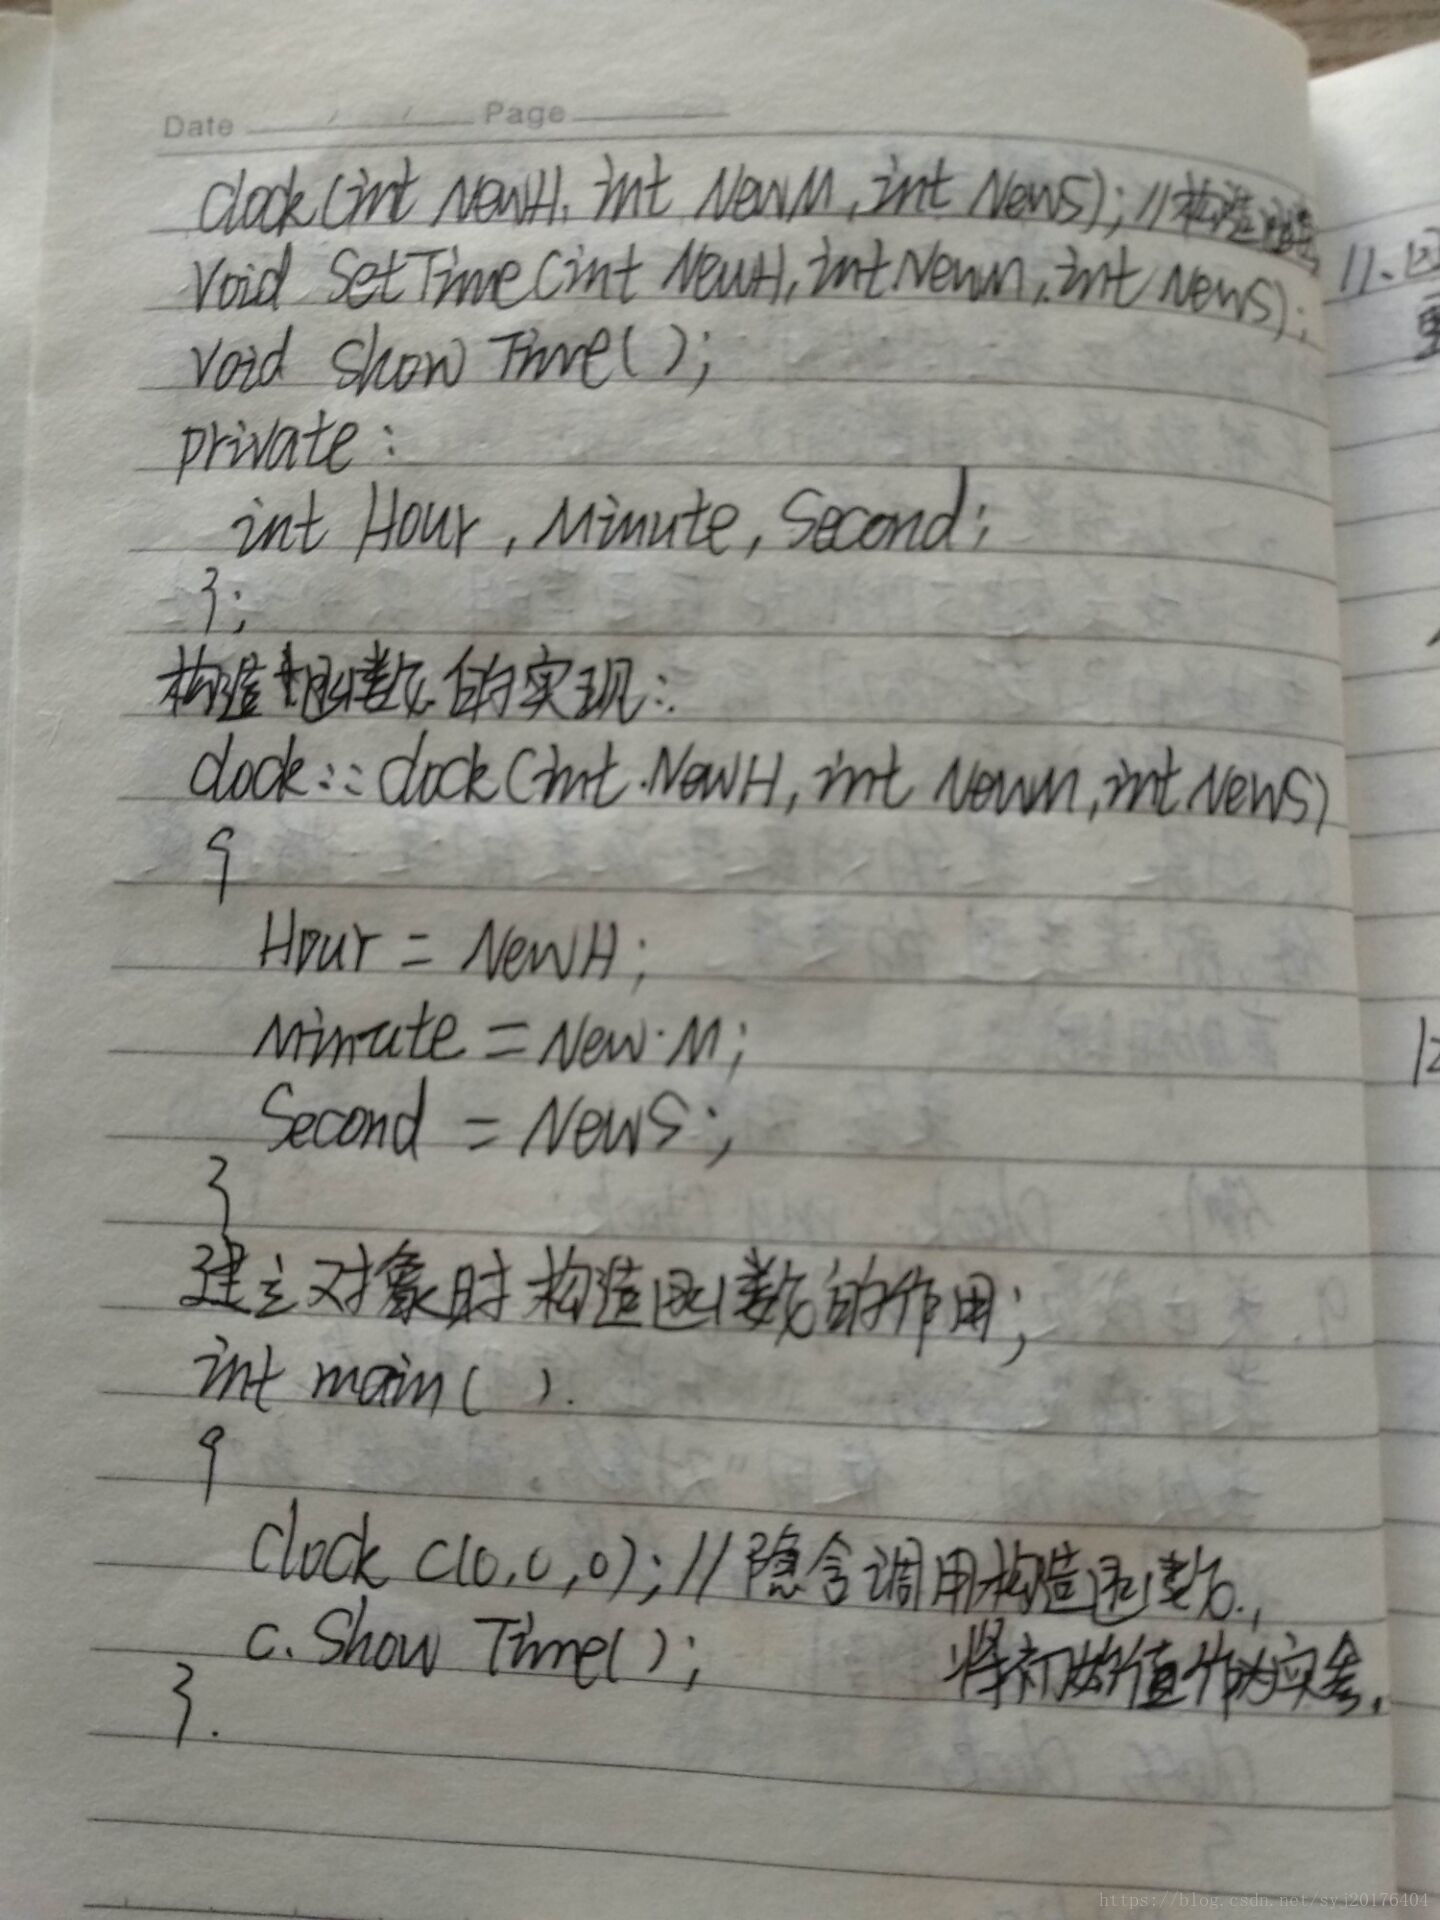 Date / / Page
clock(int NewH, int NewM, int NewS); //构造函数
void SetTime(int NewH, int NewM, int NewS);
void show Time( );
private:
int Hour, Minute, Second;
};
构造函数的实现:
clock::clock(int NewH, int NewM, int NewS)
{
Hour = NewH;
Minute = New·M;
Second = NewS;
}
建立对象时构造函数的作用;
int main( ).
{
clock c(0,0,0); //隐含调用构造函数.,
c. Show Time( ); 将初始值作为实参.
}.
11.
https://blog.csdn.net/syj20176404